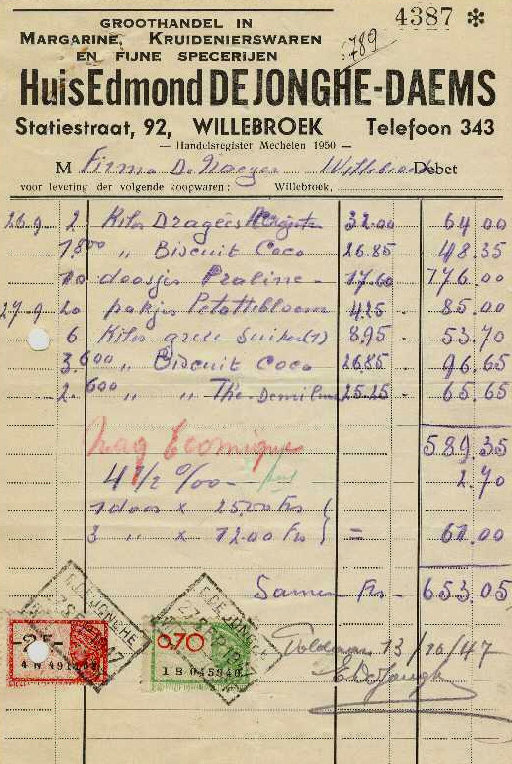 4387 *
GROOTHANDEL IN
MARGARINE, KRUIDENIERSWAREN
EN FIJNE SPECERIJEN
789
Huis Edmond DE JONGHE-DAEMS
Statiestraat, 92, WILLEBROEK Telefoon 343
— Handelsregister Mechelen 1950 —
M Firma De Naeyer Willebroek Debet
voor levering der volgende koopwaren: Willebroek,
26.9 2 Kilos Dragées 32.00 64.00
1,800 " Biscuit Coco 26.85 48.35
10 doosjes Praline - 17.60 176.00
27-9 20 pakjes 4.25 - 85.00
6 Kilos suiker (1) 8.95 - 53.70
3.600 " Biscuit Coco 26.85 - 96.65
2.600 " " The 25.25 - 65.65
589.35
4 1/2 0/00 - 2.70
1 doos x 25.00 frs
3 " x 12.00 frs = 61.00
Samen Frs - 653.05
Voldaan 13/10/47
E De Jonghe
E. DE JONGHE
E. DE JONGHE
0,70